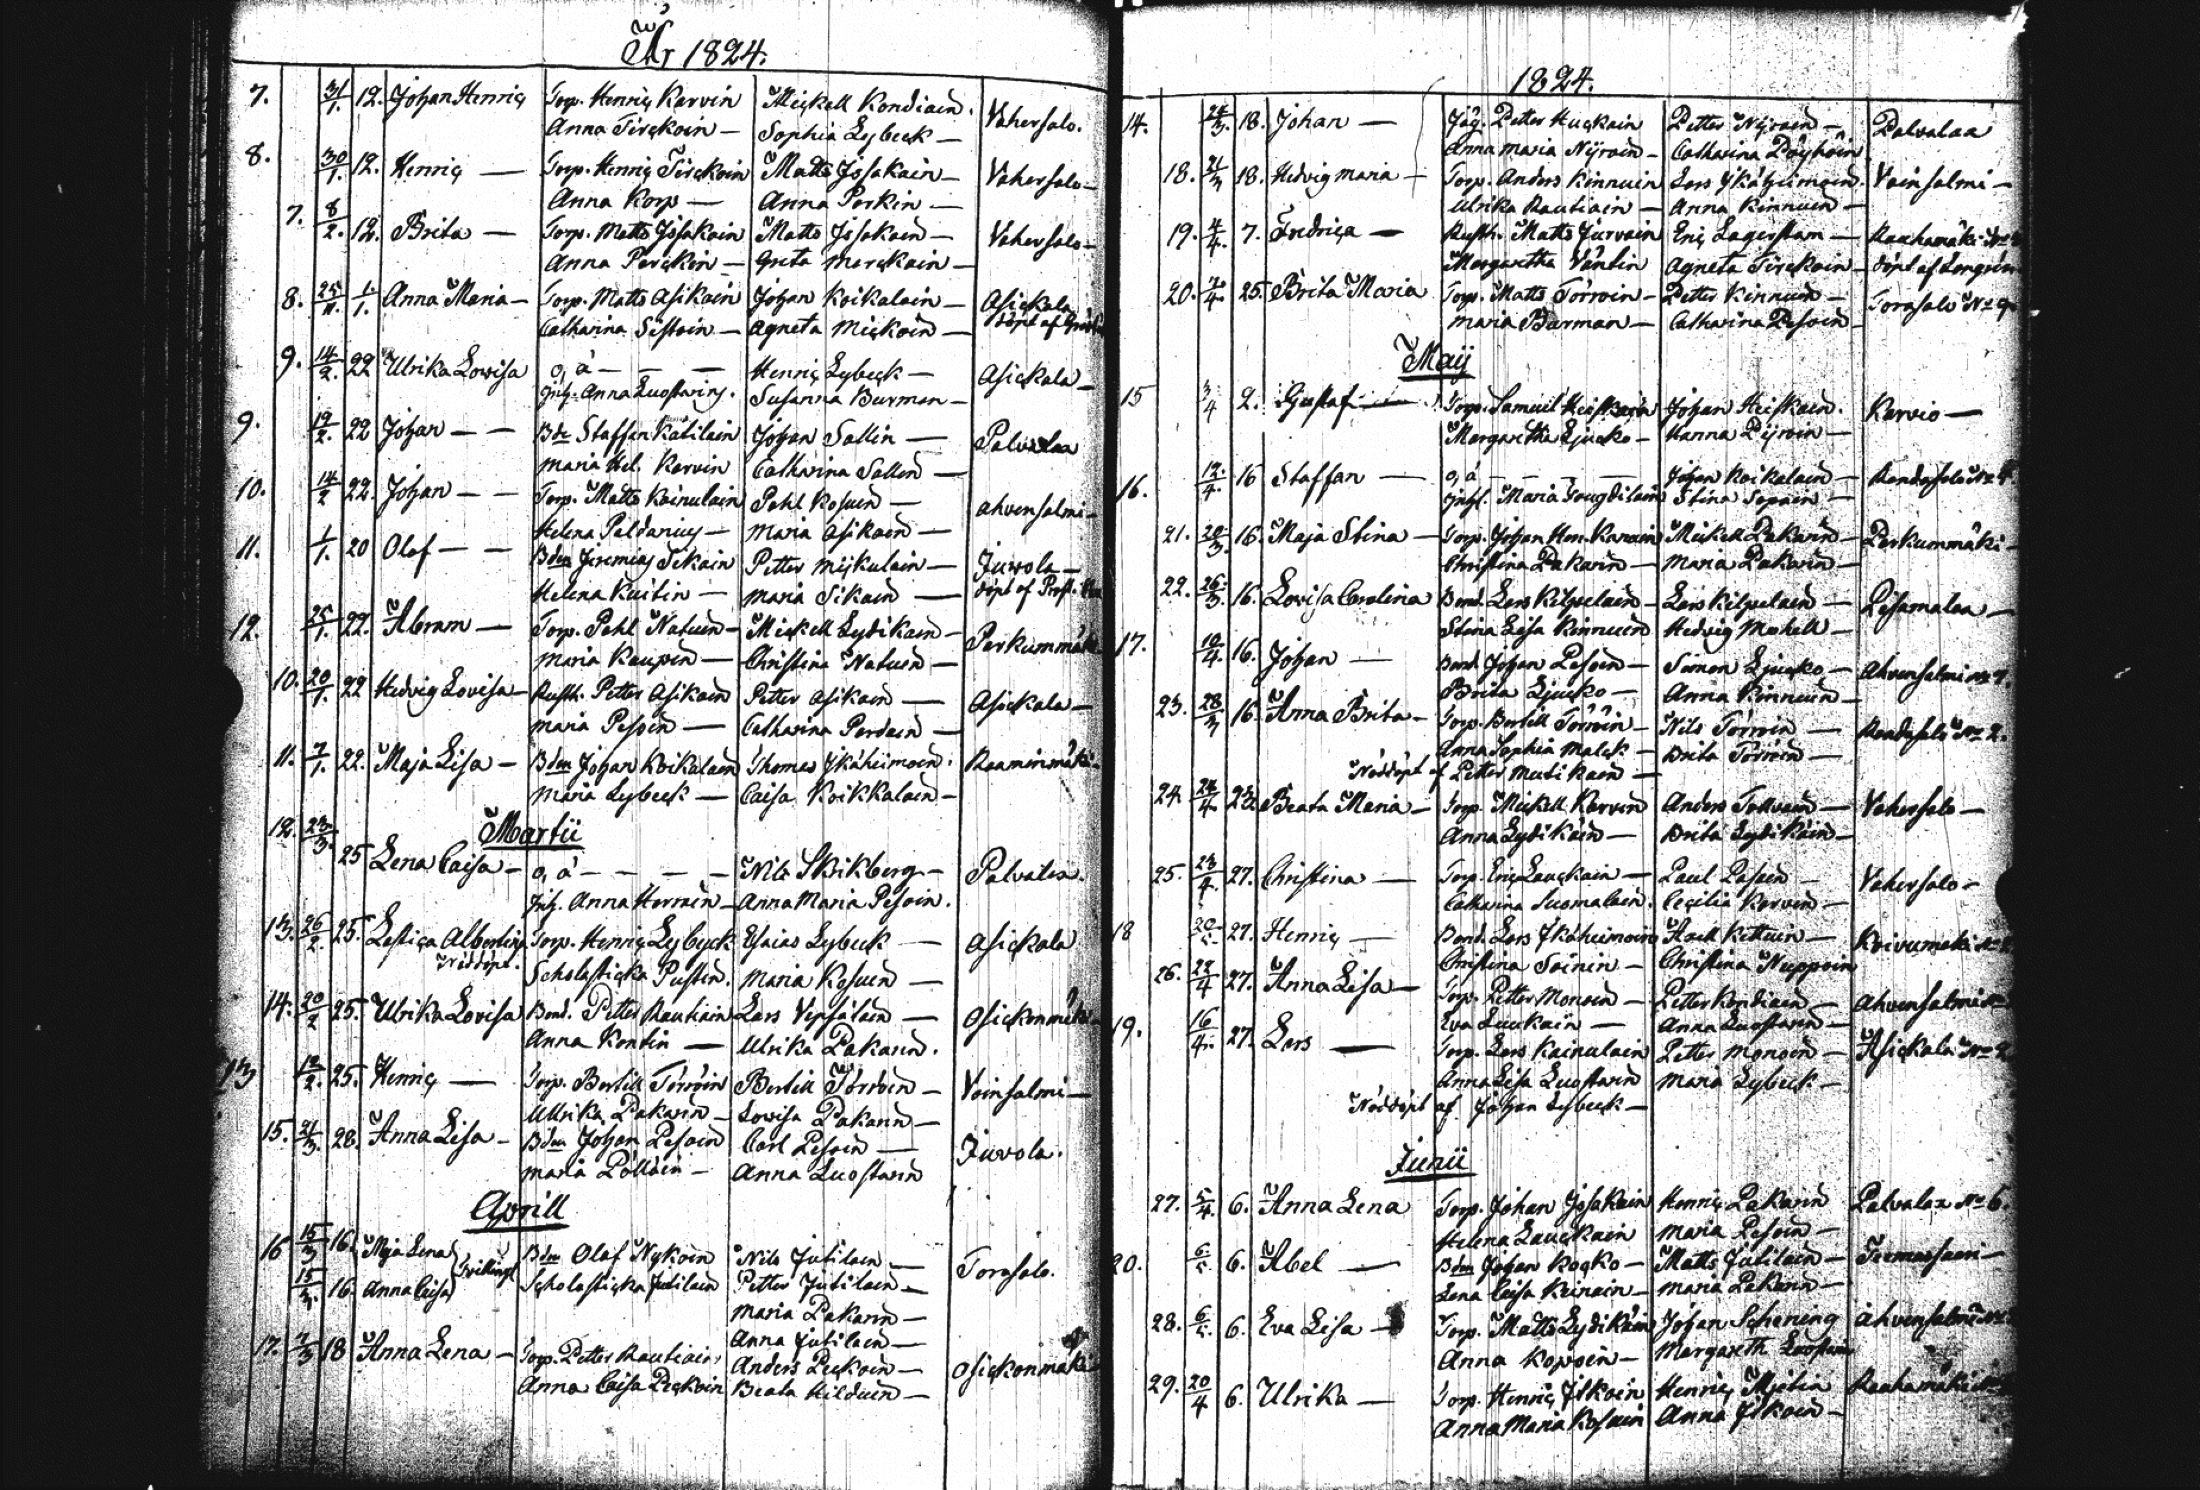 År 1824.
7. 31/1. 12. Johan Henric Torp. Henric Karvin Mickell Kondiain. Vahersalo.
Anna Tirckoin — Sophia Lybeck —
8. 30/1. 12. Henric — Torp. Henric Tirckoin Matts Issakain — Vahersalo —
Anna Korp — Anna Parkin —
7. 8/2. 12. Brita — Torp. Matts Issakain Matts Issakain — Vahersalo —
Anna Parckin — Greta Marckain —
8. 25/11. 1/1. Anna Maria — Torp. Matts Asikain Johan Koikalain — Asickala
Catharina Sistoin — Agneta Mickoin — döpt af
9. 14/2. 22 Ulrika Lowisa o, ä — — — Henric Lybeck — Asickala —
Inh. Anna Luostarin. Susanna Burman —
9. 19/2. 22 Johan — — Bdn Staffan Kätilain Johan Sallin — Palvalax
Maria Hel. Karvin Catharina Sallin —
10. 14/2 22. Johan — — Torp. Matts Kainulain Pahl Kosuin — Ahvensalmi —
Helena Paldanius — Maria Asikain —
11. 1/1. 20 Olof — — Bdn Jeremias Sikain Petter Mickulain — Juvola —
Helena Kuitin — Maria Sikain — döpt af Prost.
12. 25/1. 22. Abram — Torp. Pahl Natuin — Mickell Lydikain — Parkummäki
Maria Kaupin — Christina Natuin —
10. 20/1. 22 Hedvig Lovisa — Rusth. Petter Asikain Petter Asikain — Asickala —
Maria Pesoin — Catharina Pardain —
11. 7/1. 22. Maja Lisa — Bdn Johan Koikalain Thomas Ikäheimoin. Raaminmäki —
Maria Lybeck — Caisa Koikkalain —
Martii
12. 23/3. 25 Lena Caisa — o, ä — — — Nils Skikberg — Palvalax.
Inh. Anna Horrain — Anna Maria Pesoin.
13. 26/2. 25. Lastica Albertina Torp. Henric Lybeck Esaias Lybeck — Asickala
Nöddöpt. Scholasticka Pustin. Maria Kosuin —
14. 20/2 25. Ulrika Lovisa Bond. Petter Rautiain Lars Vepsäläin — Osickonmäki
Anna Kontin — Ulrika Pakarin.
13 12/2. 25. Henric — Torp. Bertill Törröin Bertill Törröin — Voinsalmi —
Ullrika Pakarin — Lowisa Pakarin —
15. 21/3. 28. Anna Lisa — Bdn Johan Pesoin Carl Pesoin — Juvola.
Maria Pölläin — Anna Luostarin
Aprill
16 15/3 16. Maja Lena Bdn Olof Nykoin Nils Jutilain — Torasalo.
15/3. 16. Anna Caisa Tvillingl Scholasticka Jutilain Petter Jutilain —
Maria Pakarin —
Anna Jutilain —
17. 7/3 18 Anna Lena — Torp. Petter Rautiain, Anders Peckoin — Osickonmäki
Anna Caisa Peckoin Beata Hilduin —
1824.
14. 24/3. 18. Johan — Petter Huckain Petter Nijroin — Palvalax
Anna Maria Nijroin — Catharina Pöyhöin
18. 21/3 18. Hedvig Maria — Torp. Anders Kinnuin Lars Ikäheimoin. Voinsalmi —
Ulrika Rautiain — Anna Kinnuin —
19. 4/4. 7. Fredrica — Rusth. Matts Jurvain Eric Lagerstam — Rauhamäki
Margaretha Väntin Agneta Tirckoin — döpt af
20. 7/4. 25. Brita Maria Torp. Matts Törröin — Petter Kinnuin — Torasalo No 9
Maria Burman — Catharina Pesoin —
Maij
15 3/4 2. Gustaf — Torp. Samuel Heiskain Johan Heiskain. Karvio —
Margaretha Ljucko — Hanna Pijroin —
16. 12/4. 16 Staffan — o, ä — — — Johan Koikalain — Randasalo No
Inhl. Maria Stina Sopain —
21. 20/3. 16. Maja Stina — Torp. Johan Hen. Karvin Mickell Pakarin — Parkummäki —
Christina Pakarin — Maria Pakarin —
22. 26/3. 16. Lovisa Carolina Bond. Lars Kilpelain — Lars Kilpelain — Pesamalax —
Stina Lisa Kinnuin Hedvig Mackell —
17. 10/4. 16. Johan — Bond. Johan Pesoin — Simon Ljucko — Ahvensalmi No 7.
Brita Ljucko — Anna Kinnuin —
23. 28/3 16. Anna Brita — Torp. Bertill Törröin — Nils Törröin — Randasalo No 2.
Anna Sophia Malck — Brita Törröin —
Nöddöpt af Petter Mutikain —
24. 24/4. 23 Beata Maria — Torp. Mickell Karvin Anders Tollvain — Vahersalo —
Anna Lydikäin — Brita Lydikäin —
25. 23/4. 27. Christina — Torp. Eric Lauckain — Paul Pasoin — Vahersalo —
Catharina Suomalain. Cecilia Karvin —
18 20/4. 27. Henric — Bond. Lars Ikäheimoin Axell Kettuin — Koivumäki No
Christina Soinin — Christina Nuppoin
26. 22/4 27. Anna Lisa — Torp. Petter Monoin — Petter Kondiain — Ahvensalmi
Eva Luukain — Anna Luostarin —
19. 16/4. 27. Lars — Torp. Lars Kainulain Petter Monoin — Asickala No 2
Anna Lisa Luostarin Maria Lybeck —
Nöddöpt af Johan Lybeck —
Junii
27. 5/4. 6. Anna Lena Torp. Johan Issakain Henric Pakarin Palvalax No 6.
Helena Lauckain Maria Pesoin —
20. 6/5. 6. Abel — Bdn Johan Kocko — Matts Jutilain — Termassaari —
Lena Caisa Keinain — Maria Pakarin —
28. 6/5. 6. Eva Lisa — Torp. Matts Lydikäin Johan Schening Ahvensalmi
Anna Kopoin — Margareth Luostarin
29. 20/4 6. Ulrika — Torp. Henric Ilkoin Henric Rauhamäki
Anna Maria Kosuin Anna Ilkoin —